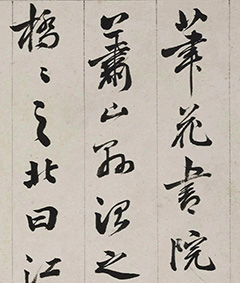 筆花書院
蕭山縣治之
橋〻之北曰江